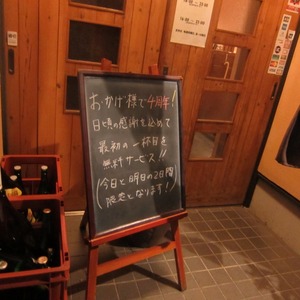 おかげ様で4周年!
日頃の感謝を込めて
最初の一杯目を
無料サービス!!
(今日と明日の2日間
限定となります!)